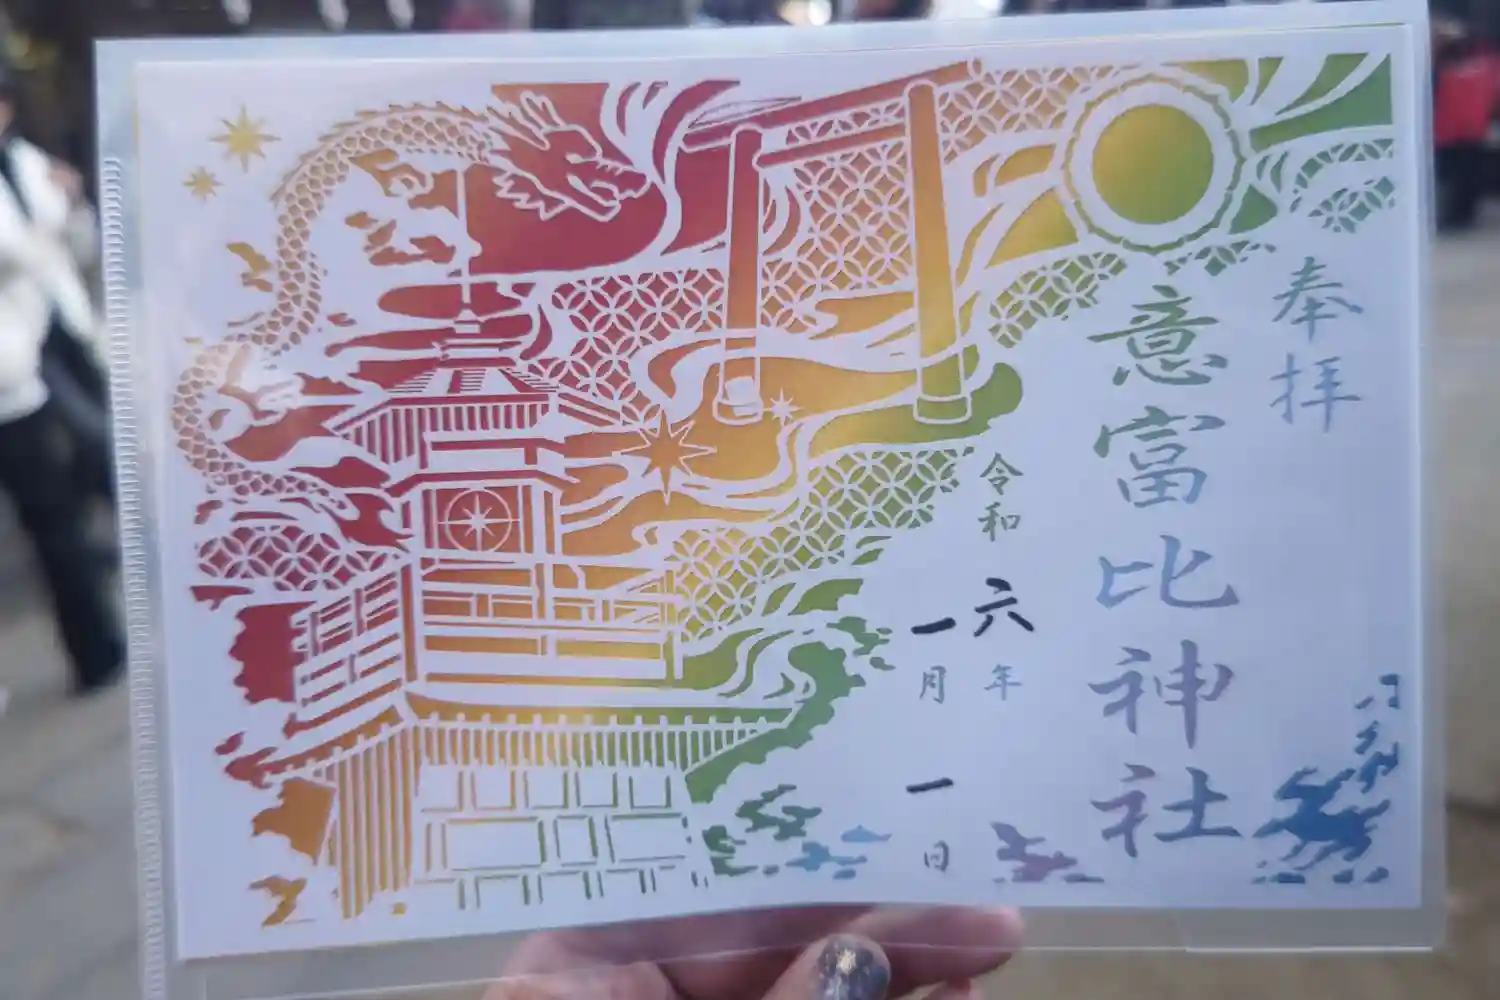 奉拝
意富比神社
令和六年
一月一日